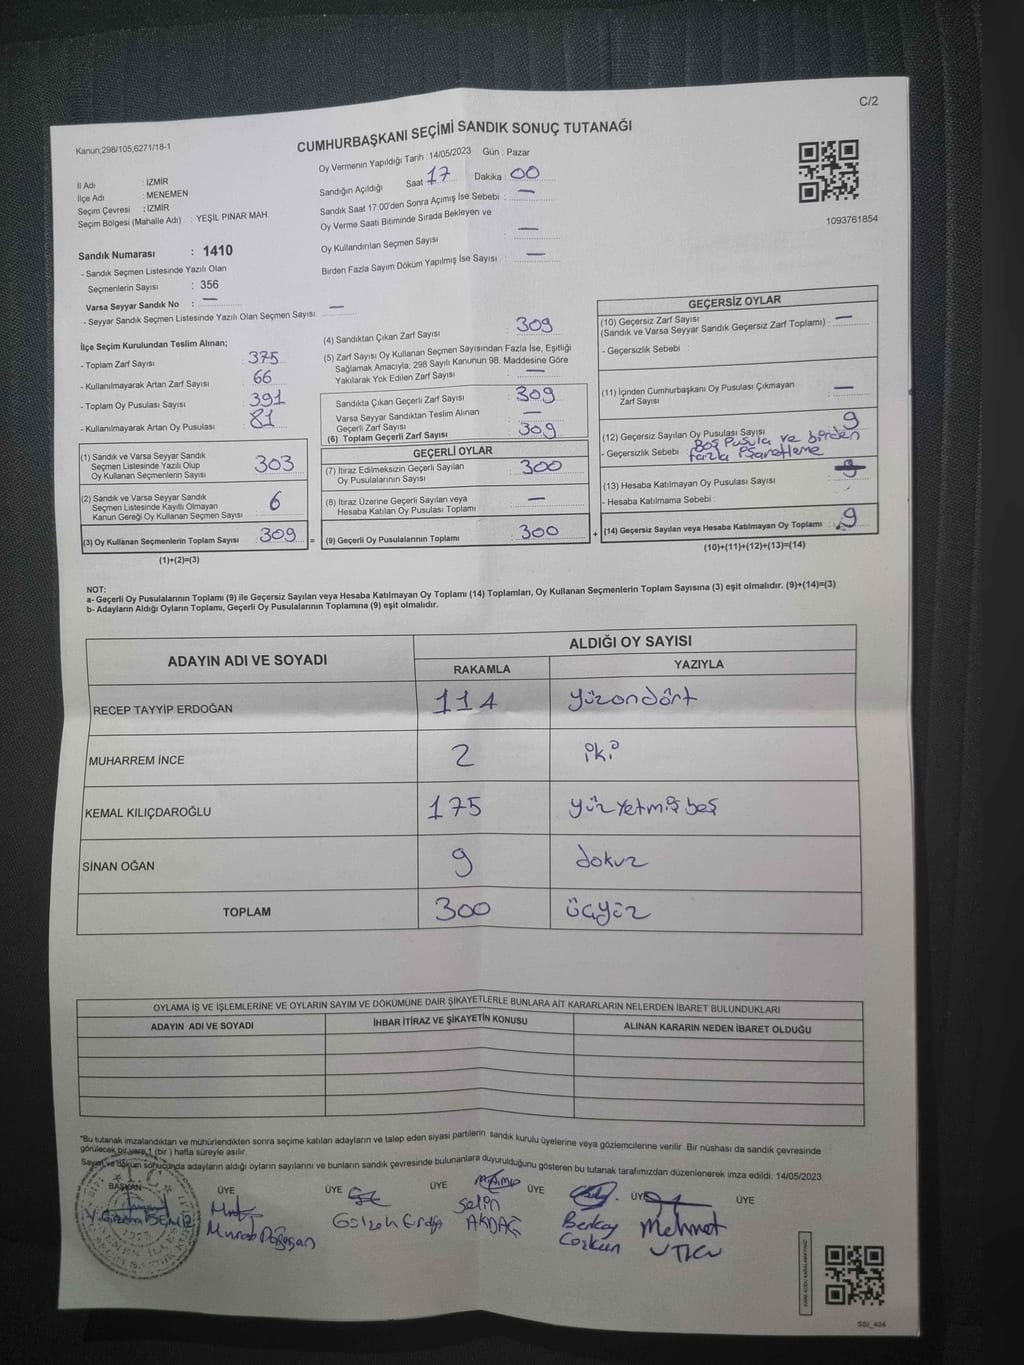 C/2
Kanun;298/105,6271/18-1
CUMHURBAŞKANI SEÇİMİ SANDIK SONUÇ TUTANAĞI
Oy Vermenin Yapıldığı Tarih : 14/05/2023 Gün : Pazar
Sandığın Açıldığı Saat 17 Dakika : 00
Sandık Saat 17:00'den Sonra Açımış İse Sebebi : —
Oy Verme Saati Bitiminde Sırada Bekleyen ve
Oy Kullandırılan Seçmen Sayısı : —
Birden Fazla Sayım Döküm Yapılmış İse Sayısı : —
1093761854
İl Adı : İZMİR
İlçe Adı : MENEMEN
Seçim Çevresi : İZMİR
Seçim Bölgesi (Mahalle Adı) : YEŞİL PINAR MAH.
Sandık Numarası : 1410
- Sandık Seçmen Listesinde Yazılı Olan
Seçmenlerin Sayısı : 356
Varsa Seyyar Sandık No : —
- Seyyar Sandık Seçmen Listesinde Yazılı Olan Seçmen Sayısı: —
İlçe Seçim Kurulundan Teslim Alınan;
- Toplam Zarf Sayısı 375
- Kullanılmayarak Artan Zarf Sayısı 66
- Toplam Oy Pusulası Sayısı 391
- Kullanılmayarak Artan Oy Pusulası 81
(1) Sandık ve Varsa Seyyar Sandık
Seçmen Listesinde Yazılı Olup
Oy Kullanan Seçmenlerin Sayısı 303
(2) Sandık ve Varsa Seyyar Sandık
Seçmen Listesinde Kayıtlı Olmayan
Kanun Gereği Oy Kullanan Seçmen Sayısı 6
(3) Oy Kullanan Seçmenlerin Toplam Sayısı : 309 =
(1)+(2)=(3)
(4) Sandıktan Çıkan Zarf Sayısı 309
(5) Zarf Sayısı Oy Kullanan Seçmen Sayısından Fazla İse, Eşitliği
Sağlamak Amacıyla; 298 Sayılı Kanunun 98. Maddesine Göre
Yakılarak Yok Edilen Zarf Sayısı : —
Sandıkta Çıkan Geçerli Zarf Sayısı : 309
Varsa Seyyar Sandıktan Teslim Alınan
Geçerli Zarf Sayısı —
(6) Toplam Geçerli Zarf Sayısı : 309
GEÇERLİ OYLAR
(7) İtiraz Edilmeksizin Geçerli Sayılan
Oy Pusulalarının Sayısı : 300
(8) İtiraz Üzerine Geçerli Sayılan veya
Hesaba Katılan Oy Pusulası Toplamı : —
(9) Geçerli Oy Pusulalarının Toplamı : 300 +
GEÇERSİZ OYLAR
(10) Geçersiz Zarf Sayısı
(Sandık ve Varsa Seyyar Sandık Geçersiz Zarf Toplamı) : —
- Geçersizlik Sebebi :
(11) İçinden Cumhurbaşkanı Oy Pusulası Çıkmayan
Zarf Sayısı —
(12) Geçersiz Sayılan Oy Pusulası Sayısı 9
- Geçersizlik Sebebi Boş Pusula ve birden
fazla işaretleme
(13) Hesaba Katılmayan Oy Pusulası Sayısı : 9
- Hesaba Katılmama Sebebi :
(14) Geçersiz Sayılan veya Hesaba Katılmayan Oy Toplamı : 9
(10)+(11)+(12)+(13)=(14)
NOT:
a- Geçerli Oy Pusulalarının Toplamı (9) ile Geçersiz Sayılan veya Hesaba Katılmayan Oy Toplamı (14) Toplamları, Oy Kullanan Seçmenlerin Toplam Sayısına (3) eşit olmalıdır. (9)+(14)=(3)
b- Adayların Aldığı Oyların Toplamı, Geçerli Oy Pusulalarının Toplamına (9) eşit olmalıdır.
ADAYIN ADI VE SOYADI ALDIĞI OY SAYISI
RAKAMLA YAZIYLA
RECEP TAYYİP ERDOĞAN 114 yüzondört
MUHARREM İNCE 2 iki
KEMAL KILIÇDAROĞLU 175 yüzyetmişbeş
SİNAN OĞAN 9 dokuz
TOPLAM 300 üçyüz
OYLAMA İŞ VE İŞLEMLERİNE VE OYLARIN SAYIM VE DÖKÜMÜNE DAİR ŞİKAYETLERLE BUNLARA AİT KARARLARIN NELERDEN İBARET BULUNDUKLARI
ADAYIN ADI VE SOYADI İHBAR İTİRAZ VE ŞİKAYETİN KONUSU ALINAN KARARIN NEDEN İBARET OLDUĞU
"Bu tutanak imzalandıktan ve mühürlendikten sonra seçime katılan adayların ve talep eden siyasi partilerin sandık kurulu üyelerine veya gözlemcilerine verilir. Bir nüshası da sandık çevresinde
görülecek bir yere 1 (bir ) hafta süreyle asılır.
Sayım ve döküm sonucunda adayların aldığı oyların sayılarını ve bunların sandık çevresinde bulunanlara duyurulduğunu gösteren bu tutanak tarafımızdan düzenlenerek imza edildi. 14/05/2023
BAŞKAN ÜYE ÜYE ÜYE ÜYE ÜYE ÜYE
Selin
AKDAĞ
Berkay
Coşkun
Mehmet
UTKU
SSI_404